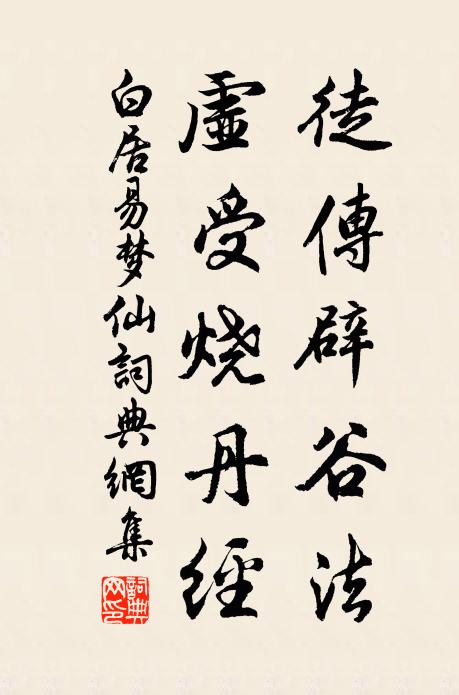 徒傳辟谷法
虛受烧丹經
白居易梦仙詞典網集
詞典网印